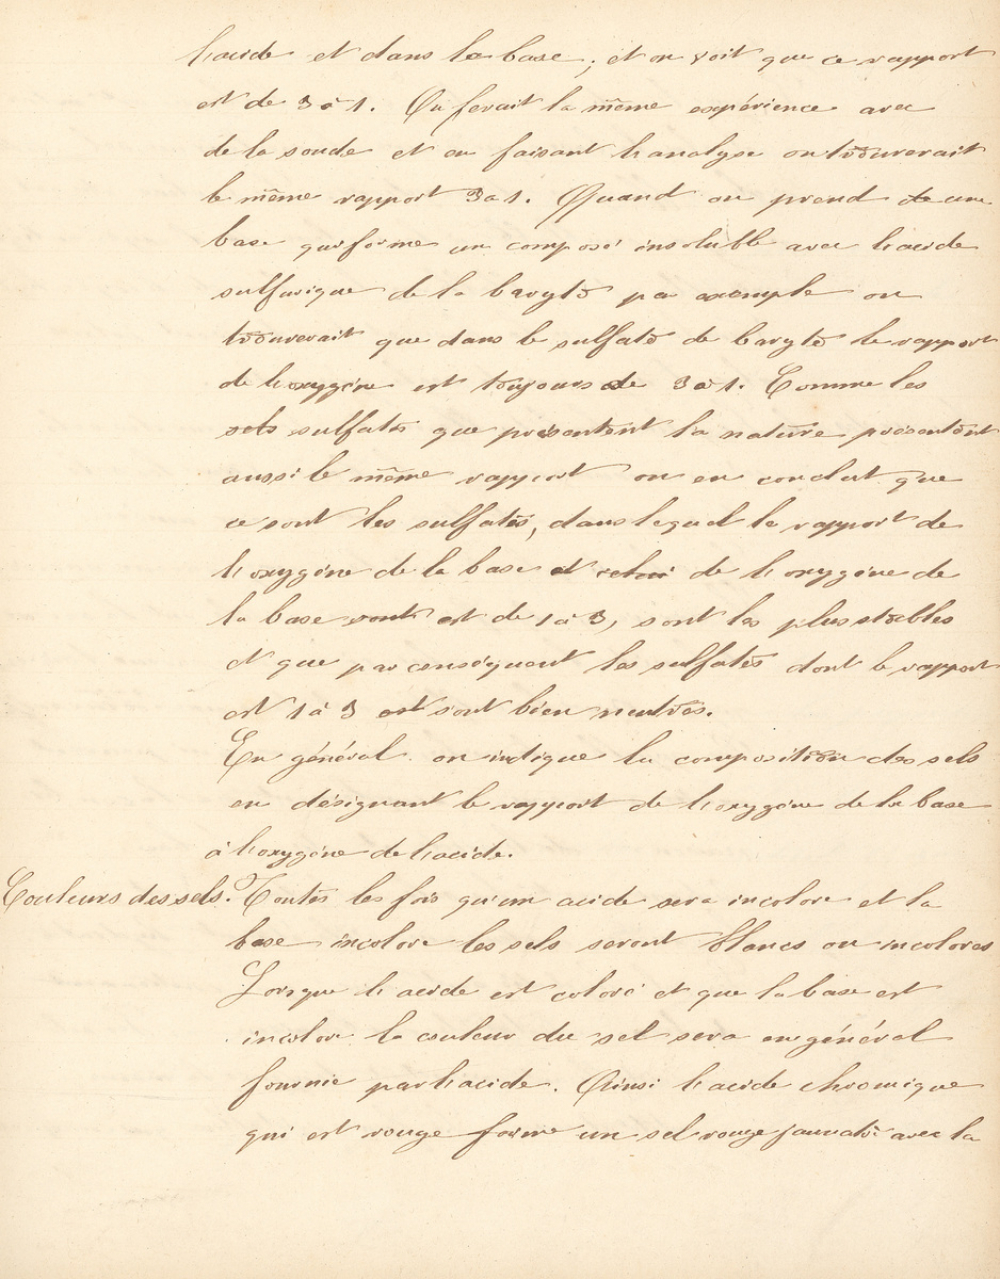 l'acide et dans la base ; et on voit que ce rapport
est de 3 à 1. On ferait la même expérience avec
de la soude et en faisant l'analyse on trouverait
le même rapport 3 à 1. Quand on prend de une
base qui forme un composé insoluble avec l'acide
sulfurique de la baryte par exemple on
trouverait que dans le sulfate de baryte le rapport
de l'oxygène est toujours de 3 à 1. Comme les
sels sulfates que présentent la nature présentent
aussi le même rapport on en conclut que
ce sont les sulfates, dans lequel le rapport de
l'oxygène de la base et celui de l'oxygène de
la base sont est de 1 à 3, sont les plus stables
et que par conséquent les sulfates dont le rapport
est 1 à 3 est sont bien neutres.
En général on indique la composition des sels
en désignant le rapport de l'oxygène de la base
à l'oxygène de l'acide.
Couleurs des sels. Toutes les fois qu'un acide sera incolore et la
base incolore les sels seront blancs ou incolores
Lorsque l'acide est coloré et que la base est
incolore la couleur du sel sera en général
fournie par l'acide. Ainsi l'acide chromique
qui est rouge forme un sel rouge jaunatre avec la